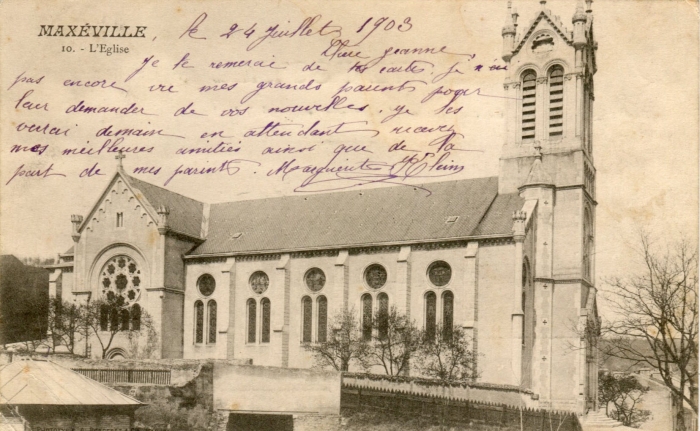 MAXÉVILLE
10. - L'Eglise
le 24 juillet 1903
Chère Jeanne
Je te remercie de tes cartes. Je n'ai
pas encore vu mes grands parents pour
leur demander de vos nouvelles. Je les
verrai demain en attendant recevez
mes meilleures amitiés ainsi que de la
part de mes parents. Marguerite Klein